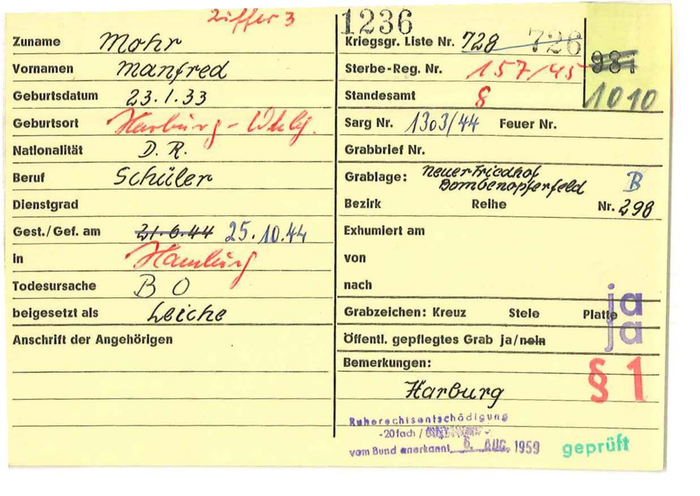 Ziffer 3
Zuname Mohr
Vornamen Manfred
Geburtsdatum 23.1.33
Geburtsort Harburg - Whlbg.
Nationalität D. R.
Beruf Schüler
Dienstgrad
Gest./Gef. am 21.6.44 25.10.44
in Hamburg
Todesursache B O
beigesetzt als Leiche
Anschrift der Angehörigen
1236
Kriegsgr. Liste Nr. 728 726
Sterbe-Reg. Nr. 157/45 981
Standesamt § 1010
Sarg Nr. 1303/44 Feuer Nr.
Grabbrief Nr.
Grablage: Neuer Friedhof
Bombenopferfeld B
Bezirk Reihe Nr. 298
Exhumiert am
von
nach
Grabzeichen: Kreuz Stele Platte ja
Öffentl. gepflegtes Grab ja/nein ja
Bemerkungen: § 1
Harburg
Ruherechtsentschädigung
-20fach /
vom Bund anerkannt 6. AUG. 1959
geprüft